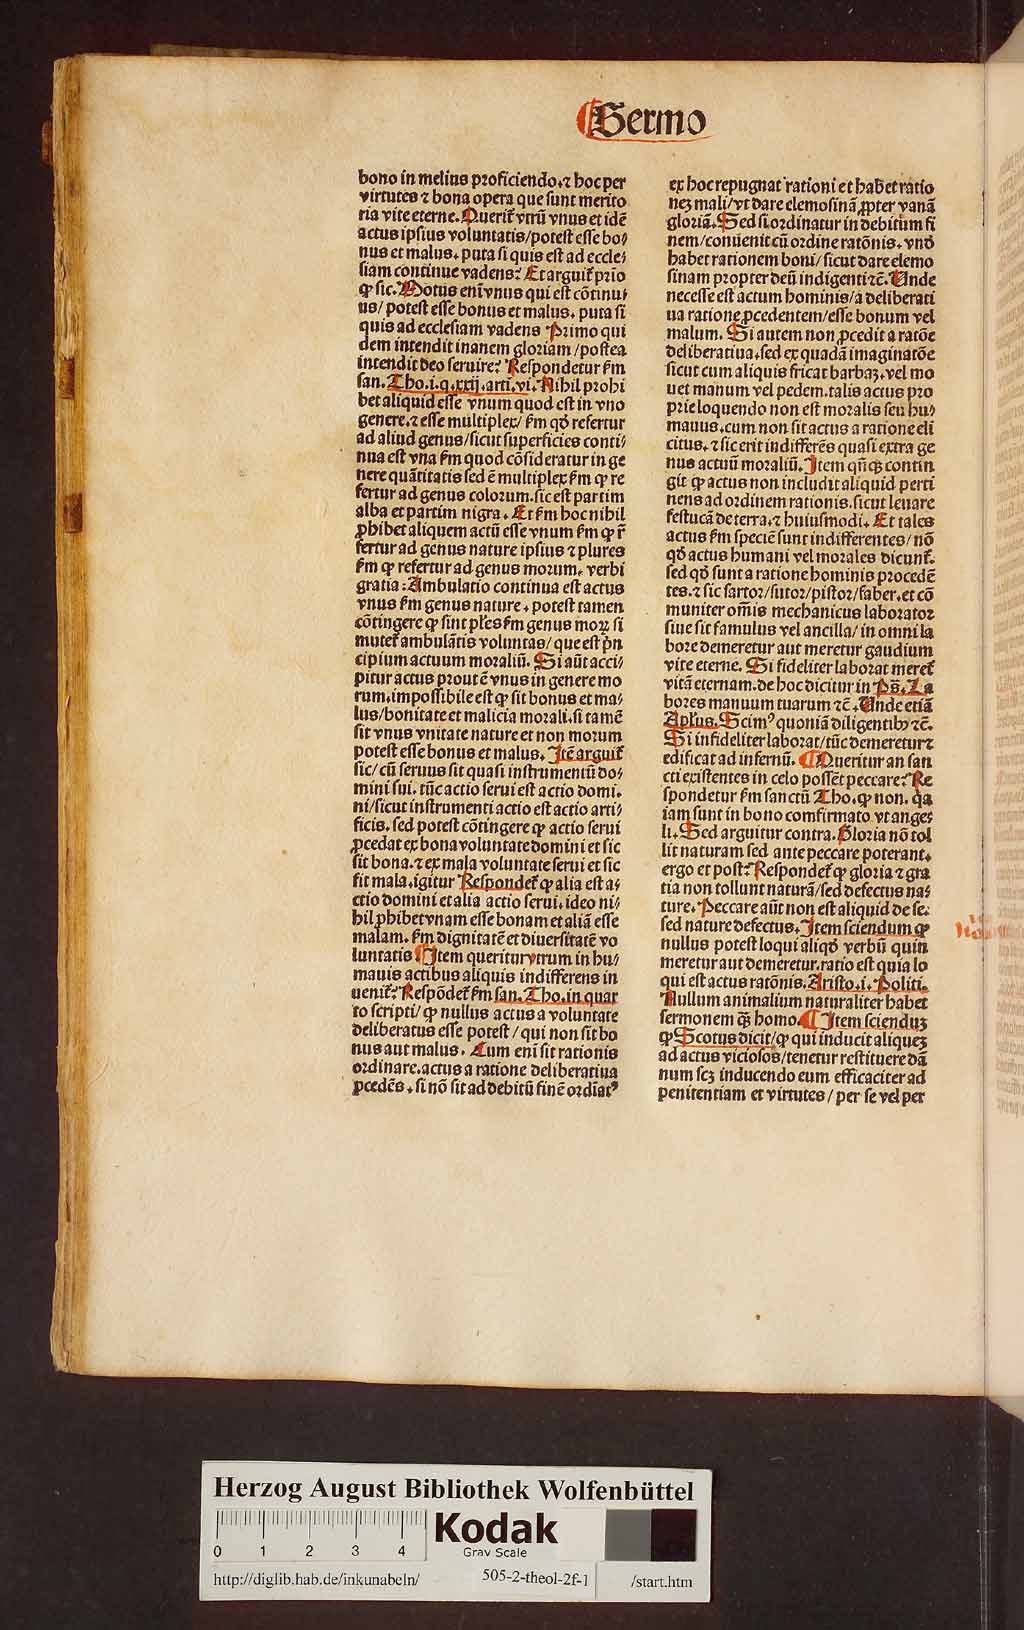 ¶Sermo
bono in melius proficiendo.⁊ hoc per
virtutes ⁊ bona opera que sunt merito
ria vite eterne. Querit̃ vtrũ vnus et idẽ
actus ipsius voluntatis/potest esse bo⸗
nus et malus. puta si quis est ad eccle⸗
siam continue vadens? Et arguit̃ prĩo
ꝙ sic. Motus eni̅ vnus qui est cõtinu⸗
us/ potest esse bonus et malus. puta si
quis ad ecclesiam vadens Primo qui
dem intendit inanem gloriam /postea
intendit deo seruire? Respondetur ẜm
san. Tho.i.q.xxij.arti.vi. Nihil prohi
bet aliquid esse vnum quod est in vno
genere.⁊ esse multiplex/ ẜm qď refertur
ad aliud genus/sicut superficies conti⸗
nua est vna ẜm quod cõsideratur in ge
nere quãtitatis sed ẽ multiplex ẜm ꝙ re
fertur ad genus colorum. sic est partim
alba et partim nigra. Et ẜm hoc nihil
ꝓhibet aliquem actũ esse vnum ẜm ꝙ r̃
fertur ad genus nature ipsius ⁊ plures
ẜm ꝙ refertur ad genus morum. verbi
gratia: Ambulatio continua est actus
vnus ẜm genus nature. potest tamen
cõtingere ꝙ sint pl̃es ẜm genus moꝝ si
mutet̃ ambulãtis voluntas/ que est pñ
cipium actuum moraliũ. Si aũt acci⸗
pitur actus prout ẽ vnus in genere mo
rum. impossibile est ꝙ sit bonus et ma⸗
lus/bonitate et malicia morali. si tamẽ
sit vnus vnitate nature et non morum
potest esse bonus et malus. Itẽ arguit̃
sic/ cũ seruus sit quasi instrumentũ do⸗
mini sui. tũc actio serui est actio domi.
ni/sicut instrumenti actio est actio arti⸗
ficis. sed potest cõtingere ꝙ actio serui
ꝓcedat ex bona voluntate domini et sic
sit bona.⁊ ex mala voluntate serui et sic
sit mala.igitur Respondet̃ ꝙ alia est a⸗
ctio domini et alia actio serui. ideo ni⸗
hil ꝓhibet vnam esse bonam et aliã esse
malam. ẜm dignitatẽ et diuersitatẽ vo
luntatis ¶Item queritur vtrum in hu⸗
manis actibus aliquis indifferens in
uenit̃? Respõdet̃ ẜm san. Tho.in quar
to scripti/ ꝙ nullus actus a voluntate
deliberatus esse potest / qui non sit bo
nus aut malus. Cum eni̅ sit rationis
ordinare.actus a ratione deliberatiua
ꝓcedẽs. si nõ sit ad debitũ finẽ ordi̅atꝰ
ex hoc repugnat rationi et habet ratio
neꝫ mali/vt dare elemosinã ꝓpter vanã
gloriã. Sed si ordinatur in debitum fi
nem/conuenit cũ ordine ratõnis. vnď
habet rationem boni/ sicut dare elemo
sinam propter deũ indigenti ⁊c̃. Unde
necesse est actum hominis/a deliberati
ua ratione ꝓcedentem/esse bonum vel
malum. Si autem non ꝓcedit a ratõe
deliberatiua.sed ex quadã imaginatõe
sicut cum aliquis fricat barbaꝫ.vel mo
uet manum vel pedem.talis actus pro
prie loquendo non est moralis seu hu⸗
manus.cum non sit actus a ratione eli
citus.⁊ sic erit indifferẽs quasi extra ge
nus actuũ moraliũ. Item qñꝙ contin
git ꝙ actus non includit aliquid perti
nens ad ordinem rationis.sicut leuare
festucã de terra.⁊ huiusmodi. Et tales
actus ẜm speciẽ sunt indifferentes/ nõ
qď actus humani vel morales dicunt̃.
sed qď sunt a ratione hominis procedẽ
tes.⁊ sic sartor/sutor/pistor/faber.et cõ
muniter om̃is mechanicus laborator
siue sit famulus vel ancilla/ in omni la
bore demeretur aut meretur gaudium
vite eterne. Si fideliter laborat meret̃
vitã eternam.de hoc dicitur in Ps̃. La
bores manuum tuarum ⁊c̃. Unde etiã
Apl̃us. Scimꝰ quoniã diligentibꝰ ⁊c̃.
Si infideliter laborat/tũc demeretur ⁊
edificat ad infernũ. ¶Queritur an san
cti existentes in celo possẽt peccare? Re
spondetur ẜm sanctũ Tho. ꝙ non. q̃a
iam sunt in bono comfirmato vt ange⸗
li. Sed arguitur contra. Gloria nõ tol
lit naturam sed ante peccare poterant.
ergo et post? Respondet̃ ꝙ gloria ⁊ gra
tia non tollunt naturã/sed defectus na⸗
ture. Peccare aũt non est aliquid de se.
sed nature defectus. Item sciendum ꝙ
nullus potest loqui aliqď verbũ quin
meretur aut demeretur.ratio est quia lo
qui est actus ratõnis. Aristo.i. Politi.
Nullum animalium naturaliter habet
sermonem q̃ꝫ homo. ¶Item sciendũꝫ
ꝙ Scotus dicit/ꝙ qui inducit aliqueꝫ
ad actus viciosos/tenetur restituere dã
num scꝫ inducendo eum efficaciter ad
penitentiam et virtutes / per se vel per
Herzog August Bibliothek Wolfenbüttel
0 1 2 3 4
Kodak
Gray Scale
http://diglib.hab.de/inkunabeln/
505-2-theol-2f-1
/start.htm